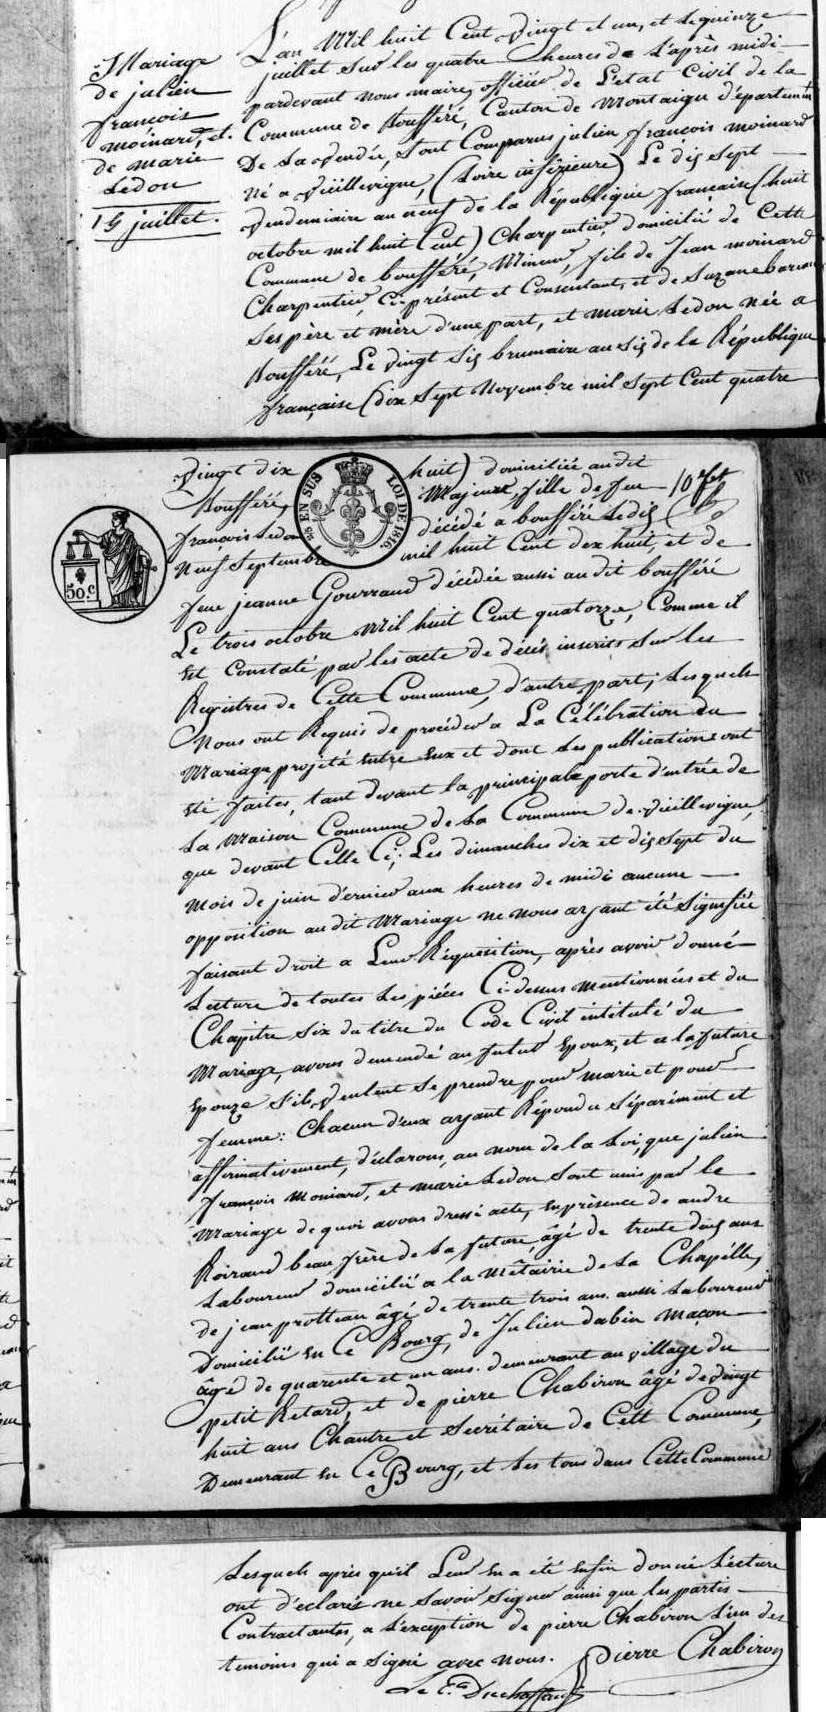 Mariage
de julien
françois
moinard, et
de marie
Ledou
15 juillet.
L'an Mil huit Cent vingt et un, et le quinze
juillet sur les quatre heures de l'après midi
pardevant nous maire, officier de l'etat Civil de la
Commune de Boufféré, Canton de Montaigu d'épartemt
De la Vendée, sont Comparus julien françois moinard
Né a vieillevigne, (Loire inférieure) Le dix sept
Vendemiaire an neuf de la République française (huit
octobre mil huit Cent) Charpentier, domicilié de Cette
Commune de boufféré, Mineur, fils de Jean moinard
Charpentier, Ci-présent et Consentant, et de Suzane
Ses père et mère d'une part, et marie Ledou née a
Boufféré, Le vingt six brumaire an six de la République
française (dix sept Novembre mil sept Cent quatre
vingt dix huit) domiciliée audit
Boufféré, Majeure, fille de feu
françois Ledou décédé a boufféré Le dix
Neuf Septembre mil huit Cent dix huit, et de
feue jeanne Gourraud d'écédée aussi audit boufféré
Le trois octobre Mil huit Cent quatorze, Comme il
est Constaté par les acte de décés inscrits sur les
Registres de Cette Commune, d'autre part; Lesquels
Nous ont Requis de procéder a La Célébration du
Mariage projeté entre eux et dont les publications ont
été faites, tant devant la principale porte d'entrée de
La Maison Commune de La Commune de vieillevigne,
que devant Celle Ci; Les dimanches dix et dix sept du
mois de juin d'ernier aux heures de midi aucune
opposition audit Mariage ne nous ayant été Signifiée
faisant droit a Leur Réquisition, après avoir donné
Lecture de toutes Les piéces Ci-dessus mentionnées et du
Chapitre six du titre du Code Civil intitulé du
Mariage, avons demendé au futur Epoux, et a la future
Epouze s'ils veulent se prendre pour marie et pour
femme: Chacun d'eux ayant Répondu Séparément et
affirmativement, déclarons, au nom de la Loi, que julien
françois Moniard, et marie Ledou Sont unis par le
Mariage de quoi avons dressé acte, en présence de andre
Roiraud beau frère de la future âgé de trente cinq ans
Laboureur domicilié a la Métairie de La Chapelle,
de jean protteau âgé de trente trois ans aussi Laboureur
Domicilié en Ce Bourg, de Julien dabin maçon
âgé de quarente et un ans demeurant au village du
petit Retard, et de pierre Chabiron âgé de vingt
huit ans Chantre et Secrétaire de Cett Commune,
Demeurant en Ce Bourg, et Les tous dans Cette Commune
EN SUS
LOI DE 1816.
50.c
Lesquels après qu'il Leur en a été enfin donné Lécture
ont d'eclarés ne Savoir Signer ainsi que les parties
Contractantes, a L'exception de pierre Chabiron L'un des
temoins qui a Signé avec nous. Pierre Chabiron